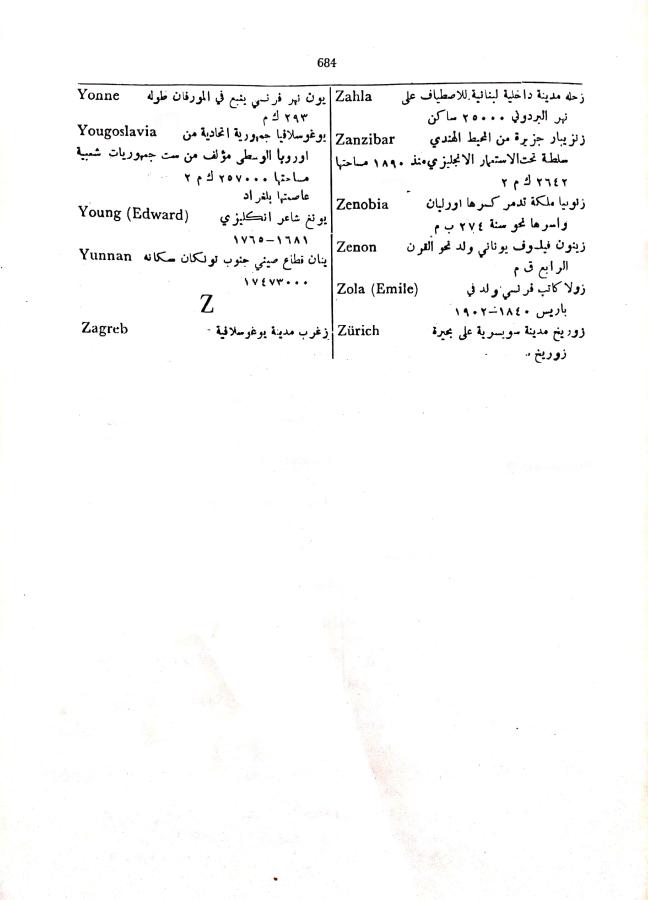 684
Yonne يون نهر فرنسي ينبع في المورفان طوله
٢٩٣ ك م
Yougoslavia يوغوسلافيا جمهورية اتحادية من
اوروبا الوسطى مؤلف من ست جمهوريات شعبية
مساحتها ٢٥٧٠٠٠ ك م ٢
عاصمتها بلغراد
Young (Edward) يونغ شاعر انكليزي
١٦٨١–١٧٦٥
Yunnan ينان قطاع صيني جنوب تونكان سكانه
١٧٤٧٣٠٠٠
Z
Zagreb زغرب مدينة يوغوسلافية
Zahla زحله مدينة داخلية لبنانية للاصطياف على
نهر البردوني ٢٥٠٠٠ ساكن
Zanzibar زنزيبار جزيرة من المحيط الهندي
سلطة تحت الاستعمار الانجليزي منذ ١٨٩٠ مساحتها
٢٦٤٢ ك م ٢
Zenobia زنوبيا ملكة تدمر كسرها اورليان
واسرها نحو سنة ٢٧٤ ب م
Zenon زينون فيلسوف يوناني ولد نحو القرن
الرابع ق م
Zola (Emile) زولا كاتب فرنسي ولد في
باريس ١٨٤٠–١٩٠٢
Zürich زوريخ مدينة سويسرية على بحيرة
زوريخ .